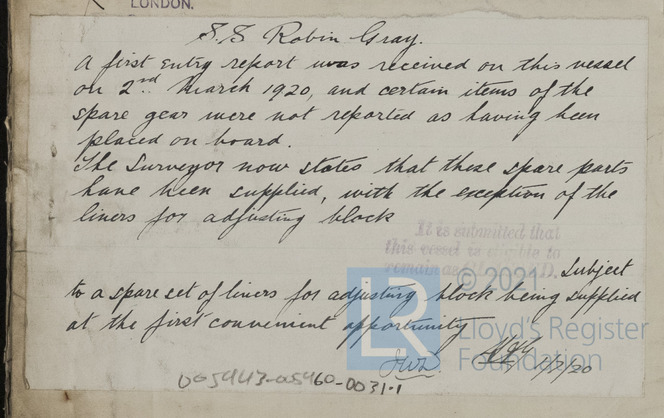 LONDON.
S.S Robin Gray.
A first entry report was received on this vessel
on 2nd March 1920, and certain items of the
spare gear were not reported as having been
placed on board.
The Surveyor now states that these spare parts
have been supplied, with the exception of the
liners for adjusting block
It is submitted that
this vessel is eligible to
remain as
Subject
to a spare set of liners for adjusting block being supplied
at the first convenient opportunity
© 2021
LR
Lloyd's Register
Foundation
005443-005460-0031-1